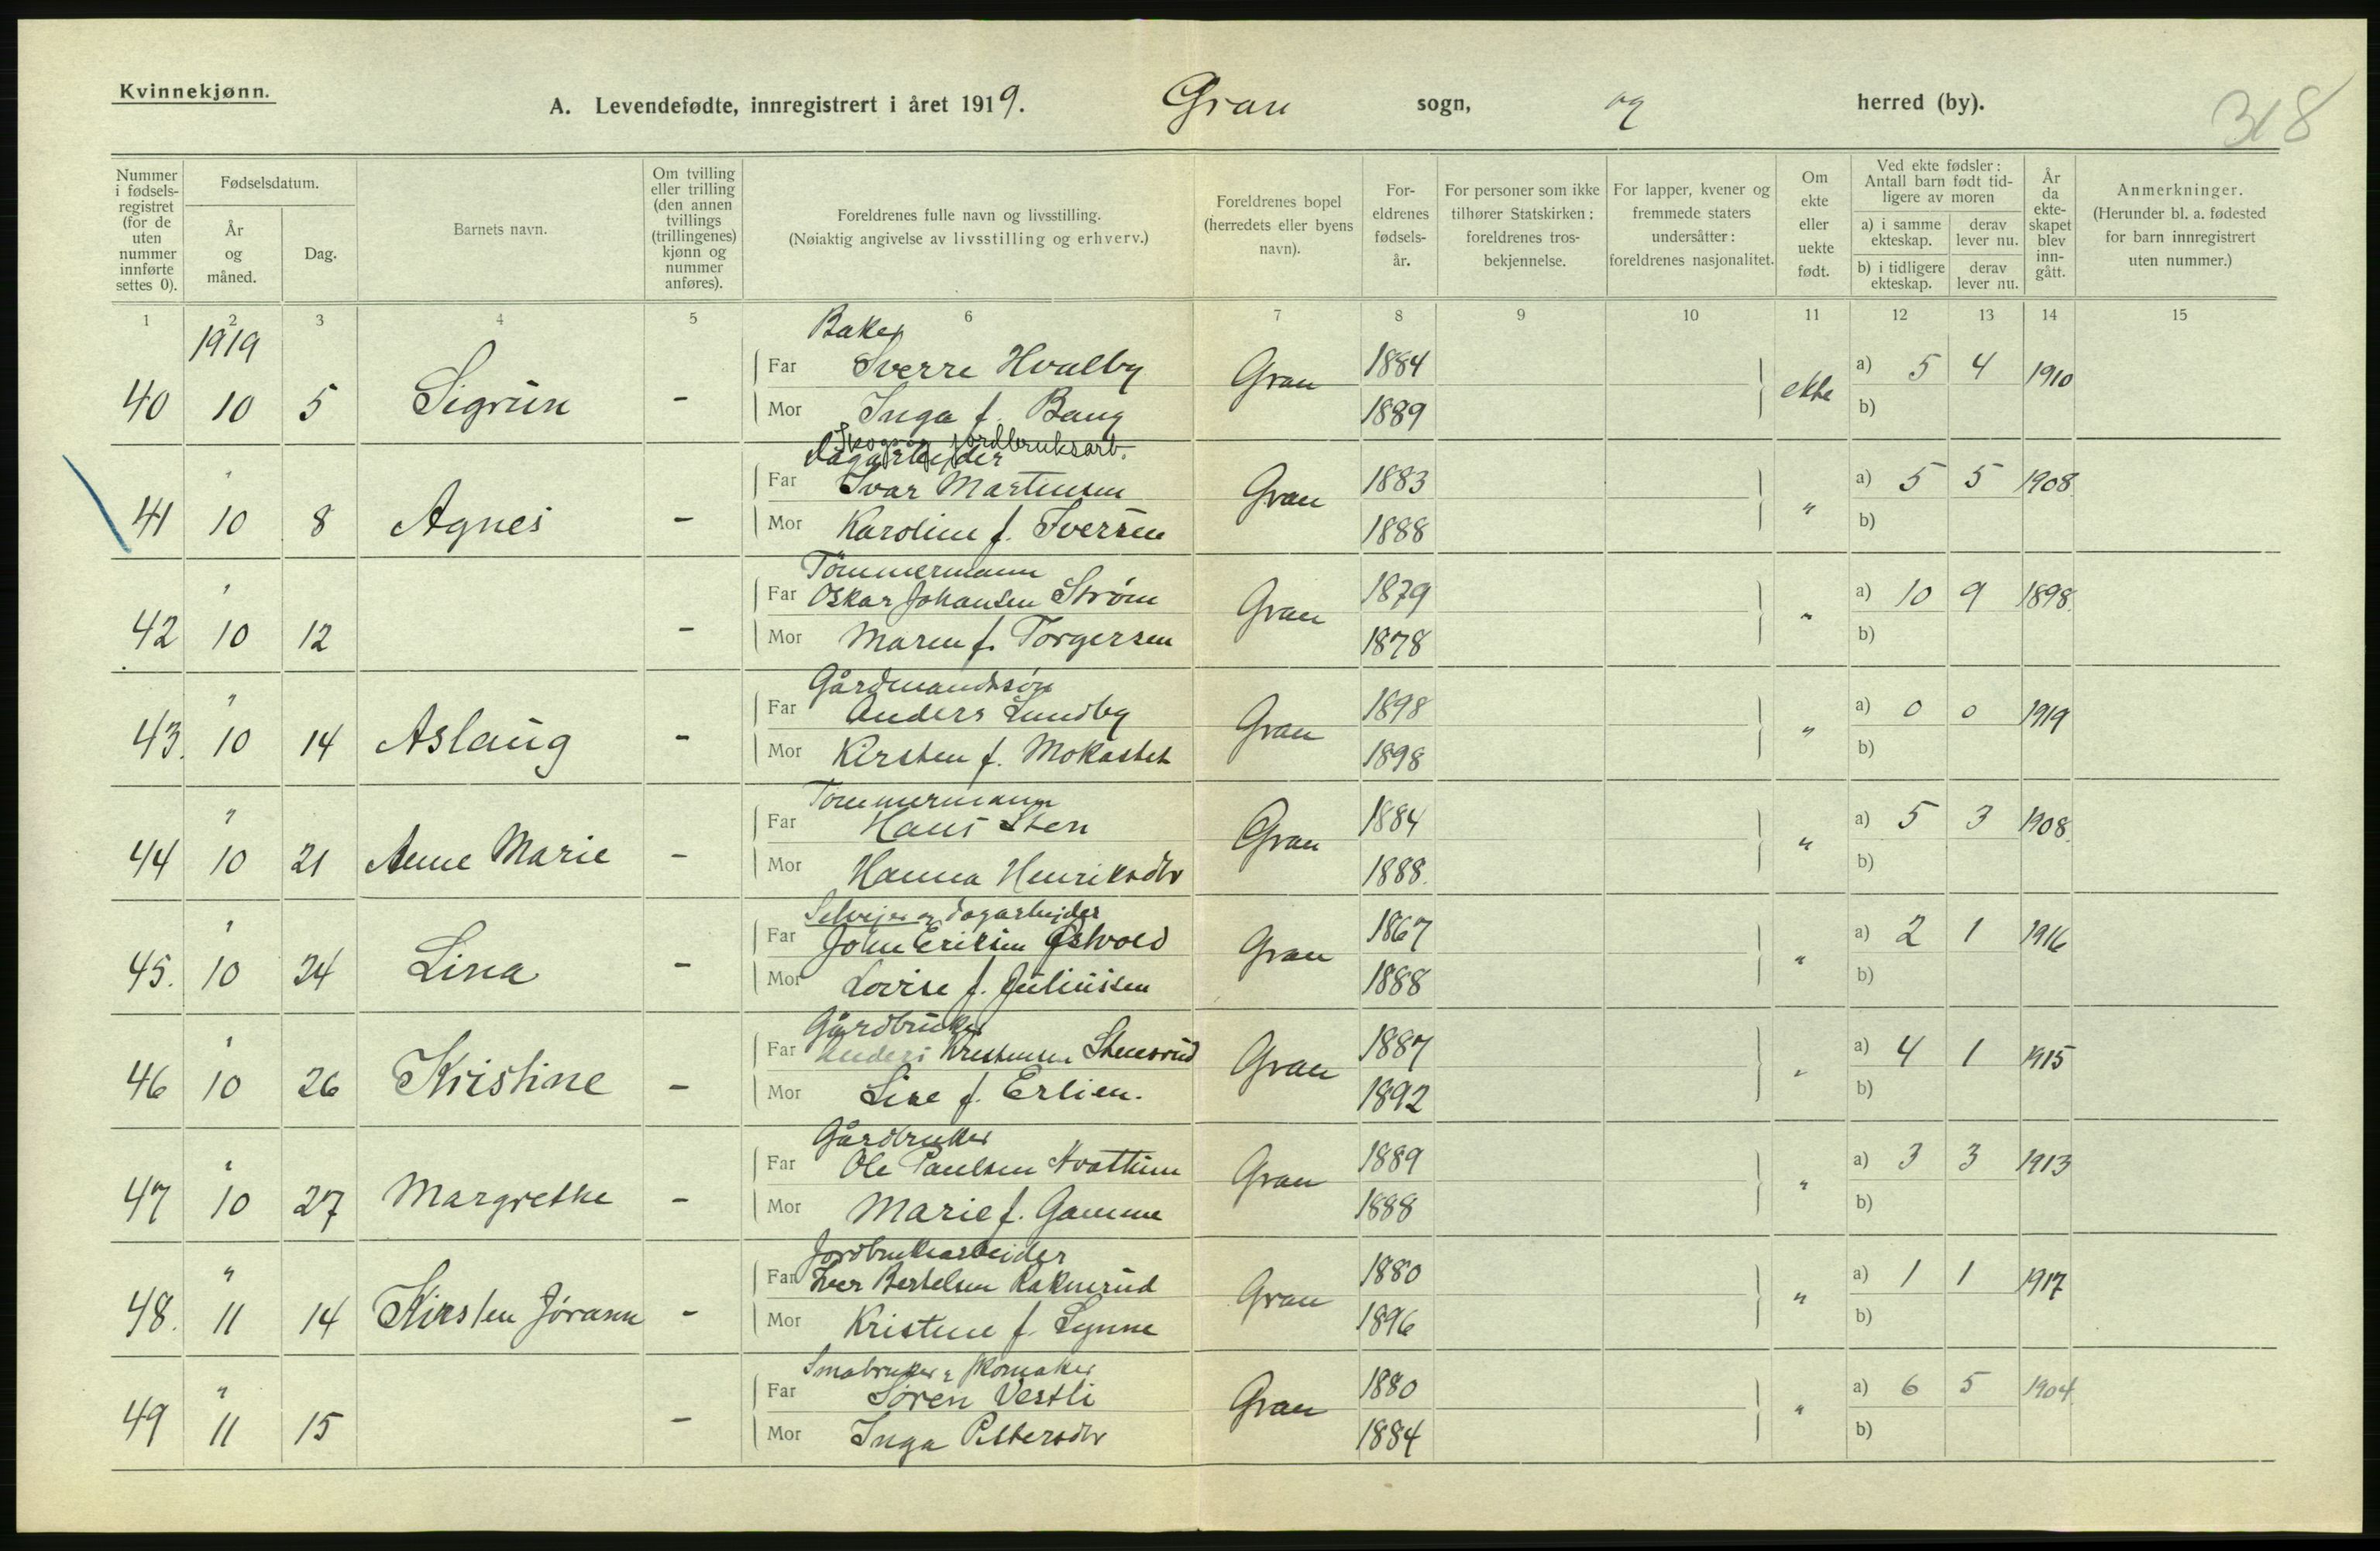 Kvinnekjønn.
A. Levendefødte, innregistrert i året 1919. Gran sogn, og herred (by). 318
Nummer i fødsels-registret (for de uten nummer innførte settes 0).
Fødselsdatum.
År og måned.
Dag.
Barnets navn.
Om tvilling eller trilling (den annen tvillings (trillingenes) kjønn og nummer anføres).
Foreldrenes fulle navn og livsstilling.
(Nøiaktig angivelse av livsstilling og erhverv.)
Foreldrenes bopel (herredets eller byens navn).
For-eldrenes fødsels-år.
For personer som ikke tilhører Statskirken: foreldrenes tros-bekjennelse.
For lapper, kvener og fremmede staters undersåtter: foreldrenes nasjonalitet.
Om ekte eller uekte født.
Ved ekte fødsler: Antall barn født tid-ligere av moren
a) i samme ekteskap. derav lever nu.
b) i tidligere ekteskap. derav lever nu.
År da ekte-skapet blev inn-gått.
Anmerkninger.
(Herunder bl. a. fødested for barn innregistrert uten nummer.)
1 2 3 4 5 6 7 8 9 10 11 12 13 14 15
1919 Baker
Far Sverre Hvalby 1884 a) 5 4
40 10 5 Sigrun - Gran ekte 1910
Mor Inga f. Bang 1889 b)
Skogs og jordbruksarb.
" Dagarbejder
Far Ivar Martensen 1883 a) 5 5 1908.
41 10 8 Agnes - Gran "
Mor Karoline f. Iversen 1888 b)
" Tömmermann
Far Oskar Johansen Strøm 1879 a) 10 9 1898.
42 10 12 - Gran "
Mor Maren f. Torgersen 1878 b)
" Gårdmandssøn
Far Anders Lundby 1898 a) 0 0 1919
43. 10 14 Aslaug - Gran "
Mor Kirsten f. Mokastet 1898 b)
" Tømmermann
Far Hans Sten 1884 a) 5 3 1908.
44 10 21 Anne Marie - Gran "
Mor Hanna Henriksdtr 1888. b)
" Selvejer og dagarbejder
Far John Eriksen Østvold 1867 a) 2 1 1916
45. 10 24 Lina - Gran "
Mor Lovise f. Juliussen 1888 b)
" Gårdbruker
Far Anders Kristensen Stensrud 1887 a) 4 1 1915
46 10 26 Kristine - Gran "
Mor Line f. Erlien. 1892 b)
" Gårdbruker
Far Ole Paulsen Hvattum 1889 a) 3 3 1913
47 10 27 Margrethe - Gran "
Mor Marie f. Gamme 1888 b)
" Jordbruksarbeider
Far Iver Bertelsen Raknerud 1880 a) 1 1 1917
48. 11 14 Kirsten Jørann - Gran "
Mor Kristine f. Lynne 1896 b)
" Småbruker & skomaker
Far Søren Vestli 1880 a) 6 5 1904.
49 11 15 - Gran "
Mor Inga Pettersdtr 1884 b)